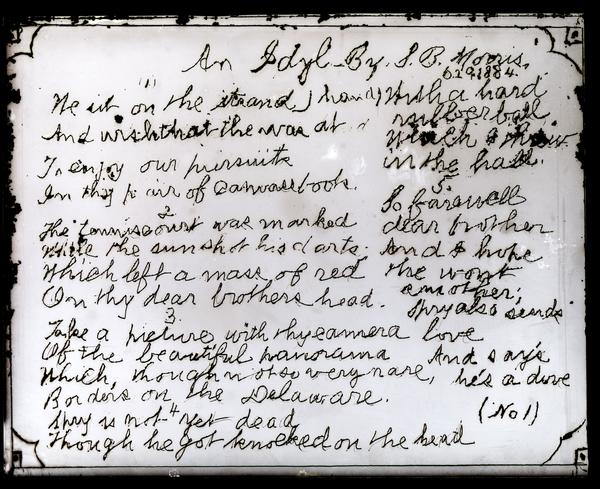 An Idyl By S. B. Morris.
6 29 1884.
(1)
We sit on the strand, (hand)
And wish that the was at
To enjoy our pursuits
In thy pair of canvas boots.
2
The tennis court was marked
While the sun shot his darts.
Which left a mass of red
On thy dear brothers head.
3.
Take a picture, with thy camera
Of the beautiful panorama
Which, though not so very rare,
Borders on the Delaware.
4
Shry is not yet dead
Though he got knocked on the head
With a hard
rubber ball
Which I throw
in the hall.
5
So farewell
dear brother
And I hope
the wont
another;
Shry also sends
love
And says
he's a dove
(No 1)